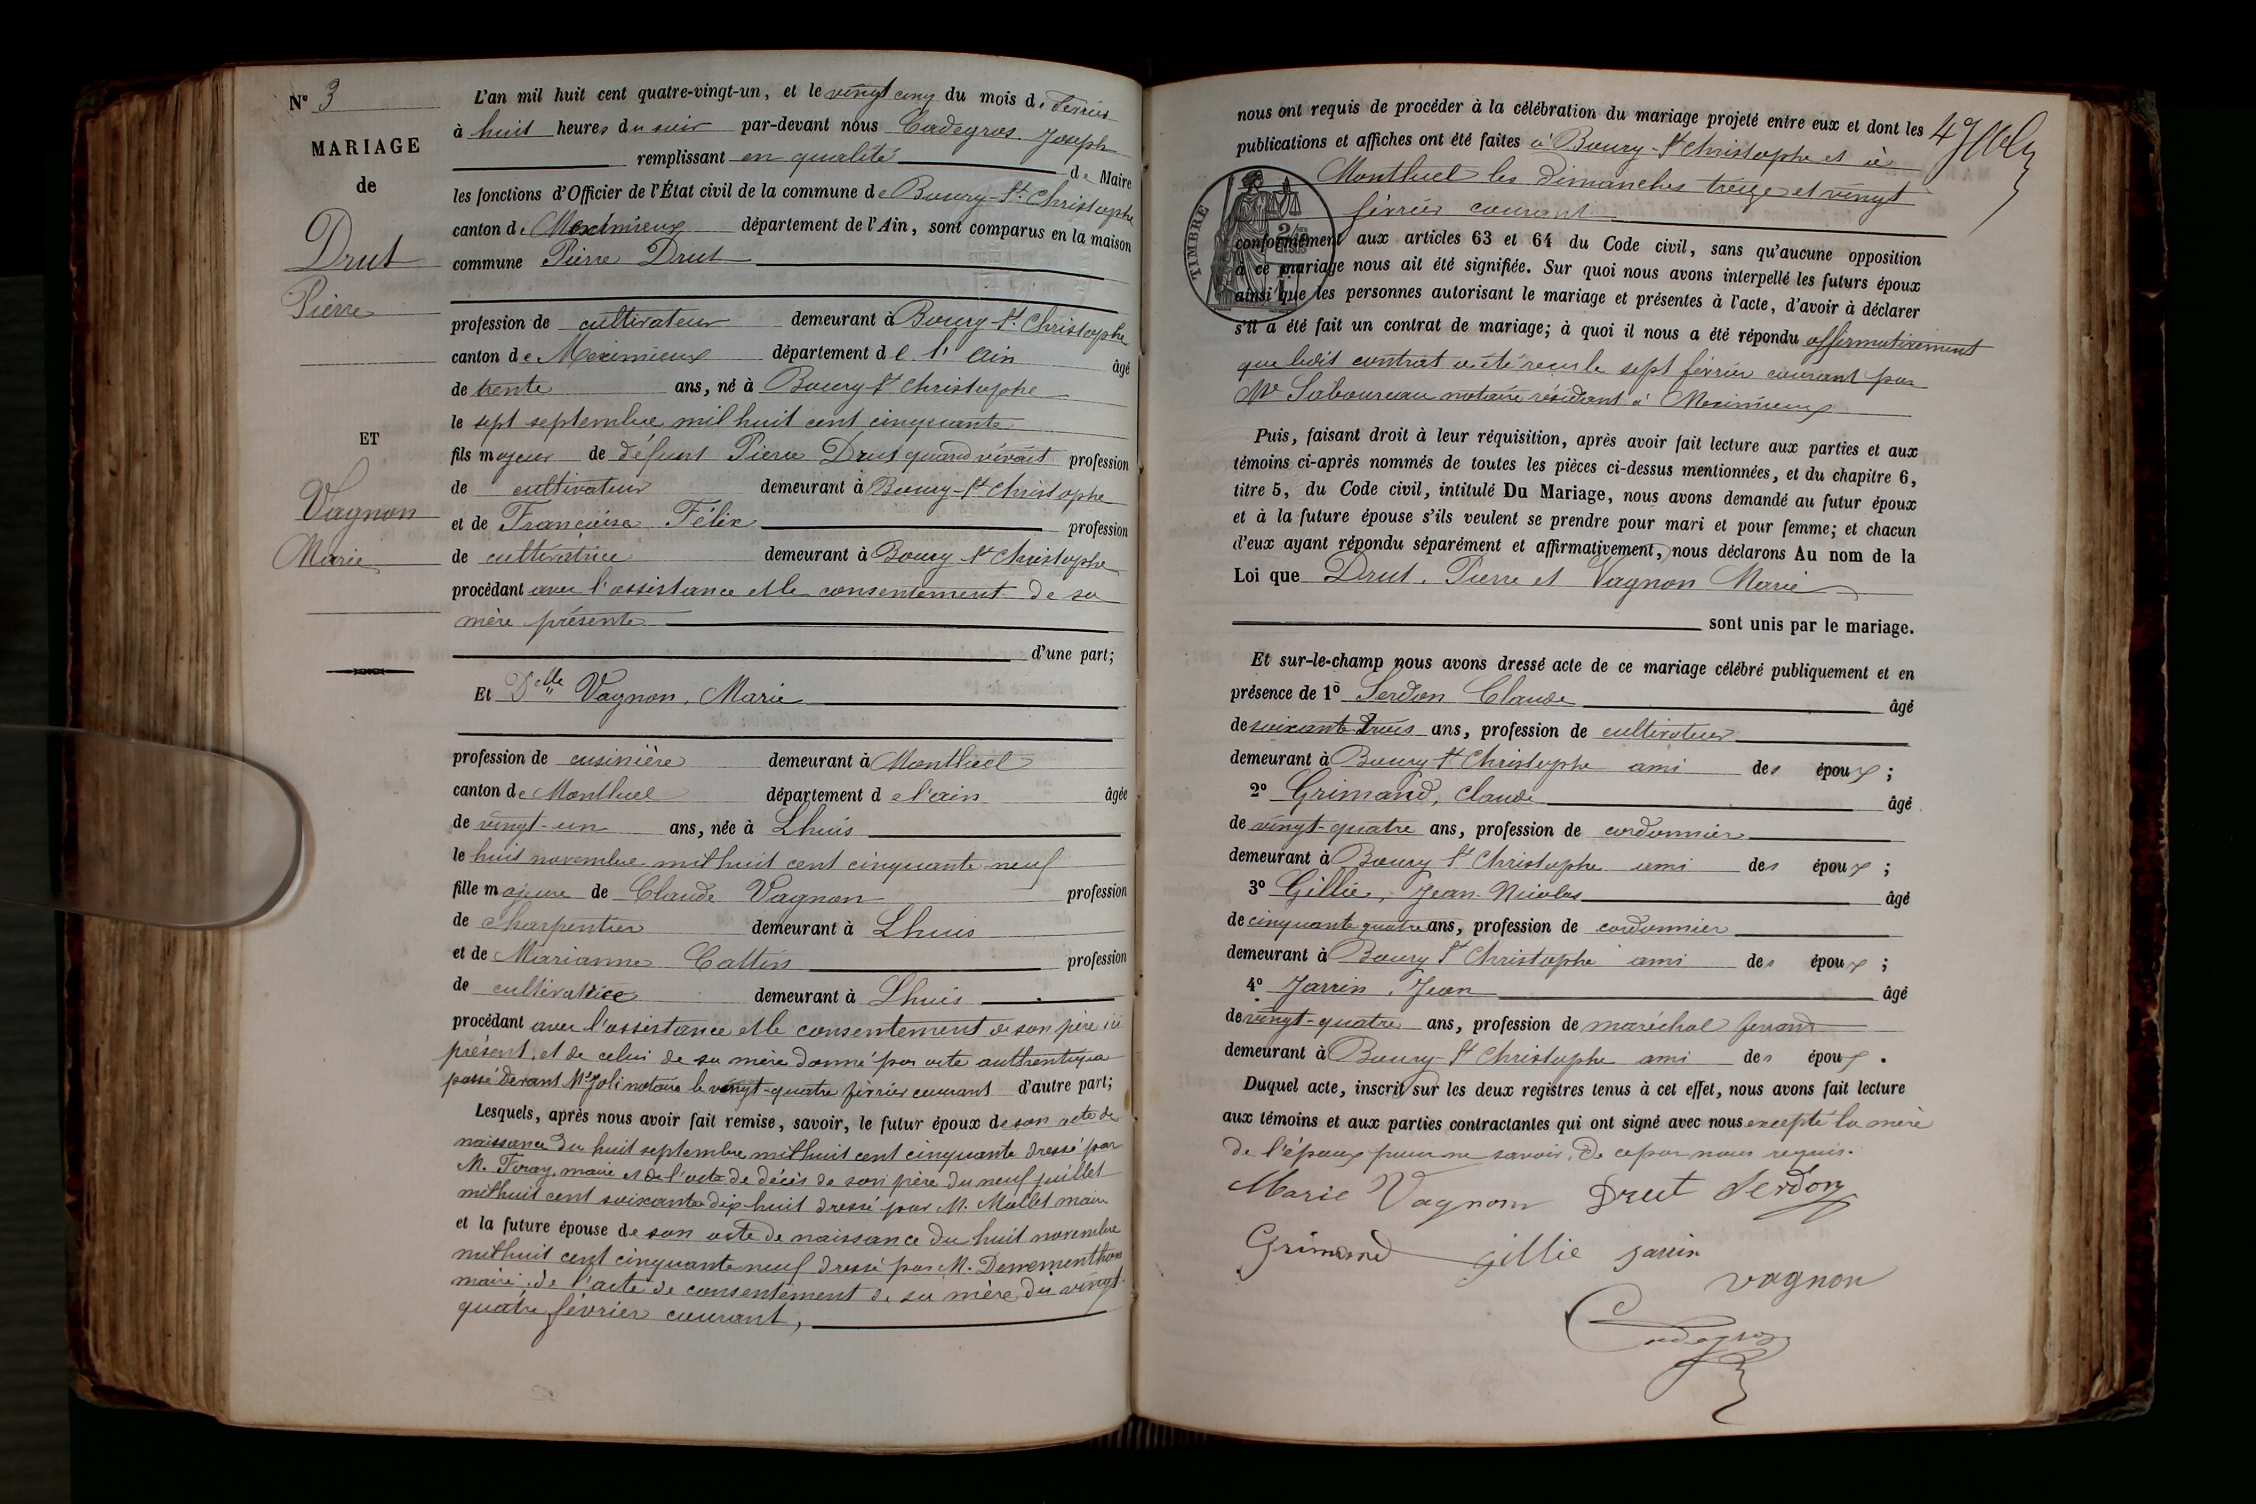 N° 3
MARIAGE
de
Drut
Pierre
ET
Vagnon
Marie
L'an mil huit cent quatre-vingt-un, et le vingt cinq du mois de février
à huit heures du soir par-devant nous Cadegros Joseph
remplissant en qualité de Maire
les fonctions d'Officier de l'État civil de la commune de Bourg-St Christophe
canton de Meximieux département de l'Ain, sont comparus en la maison
commune Pierre Drut
profession de cultivateur demeurant à Bourg-St Christophe
canton de Meximieux département de l'Ain âgé
de trente ans, né à Bourg St Christophe
le sept septembre mil huit cent cinquante
fils majeur de défunt Pierre Drut quand vivait profession
de cultivateur demeurant à Bourg-St Christophe
et de Françoise Félix profession
de cultivatrice demeurant à Bourg St Christophe
procédant avec l'assistance et le consentement de sa
mère présente
d'une part;
Et Delle Vagnon, Marie
profession de cuisinière demeurant à Montluel
canton de Montluel département de l'ain âgée
de vingt-un ans, née à Lhuis
le huit novembre mil huit cent cinquante neuf
fille majeure de Claude Vagnon profession
de Charpentier demeurant à Lhuis
et de Marianne Cattin profession
de cultivatrice demeurant à Lhuis
procédant avec l'assistance et le consentement de son père ici
présent, et de celui de sa mère donné par acte authentique
passé devant Me Joli notaire le vingt-quatre février courant d'autre part;
Lesquels, après nous avoir fait remise, savoir, le futur époux de son acte de
naissance du huit septembre mil huit cent cinquante dressé par
M. maire et de l'acte de décès de son père du neuf juillet
mil huit cent soixante dix huit dressé par M. Mollet maire
et la future épouse de son acte de naissance du huit novembre
mil huit cent cinquante neuf dressé par M.
maire, de l'acte de consentement de sa mère du vingt
quatre février courant,
nous ont requis de procéder à la célébration du mariage projeté entre eux et dont les
publications et affiches ont été faites à Bourg-St Christophe et à
Montluel les dimanches treize et vingt
février courant
TIMBRE
conformément aux articles 63 et 64 du Code civil, sans qu'aucune opposition
à ce mariage nous ait été signifiée. Sur quoi nous avons interpellé les futurs époux
ainsi que les personnes autorisant le mariage et présentes à l'acte, d'avoir à déclarer
s'il a été fait un contrat de mariage; à quoi il nous a été répondu affirmativement
que ledit contrat a été reçu le sept février courant par
Me Saboureau notaire résidant à Meximieux
Puis, faisant droit à leur réquisition, après avoir fait lecture aux parties et aux
témoins ci-après nommés de toutes les pièces ci-dessus mentionnées, et du chapitre 6,
titre 5, du Code civil, intitulé Du Mariage, nous avons demandé au futur époux
et à la future épouse s'ils veulent se prendre pour mari et pour femme; et chacun
d'eux ayant répondu séparément et affirmativement, nous déclarons Au nom de la
Loi que Drut, Pierre et Vagnon Marie
sont unis par le mariage.
Et sur-le-champ nous avons dressé acte de ce mariage célébré publiquement et en
présence de 1° Serdon Claude âgé
de soixante trois ans, profession de cultivateur
demeurant à Bourg St Christophe ami des époux;
2° Grimand, Claude âgé
de vingt-quatre ans, profession de cordonnier
demeurant à Bourg St Christophe ami des époux;
3° Gillie, Jean Nicolas âgé
de cinquante quatre ans, profession de cordonnier
demeurant à Bourg St Christophe ami des époux;
4° Jarrin, Jean âgé
de vingt-quatre ans, profession de maréchal ferrant
demeurant à Bourg-St Christophe ami des époux.
Duquel acte, inscrit sur les deux registres tenus à cet effet, nous avons fait lecture
aux témoins et aux parties contractantes qui ont signé avec nous excepté la mère
de l'époux pour ne savoir, de ce par nous requis.
Marie Vagnon Drut Serdon
Grimand gillie Jarrin
vagnon
Cadegros